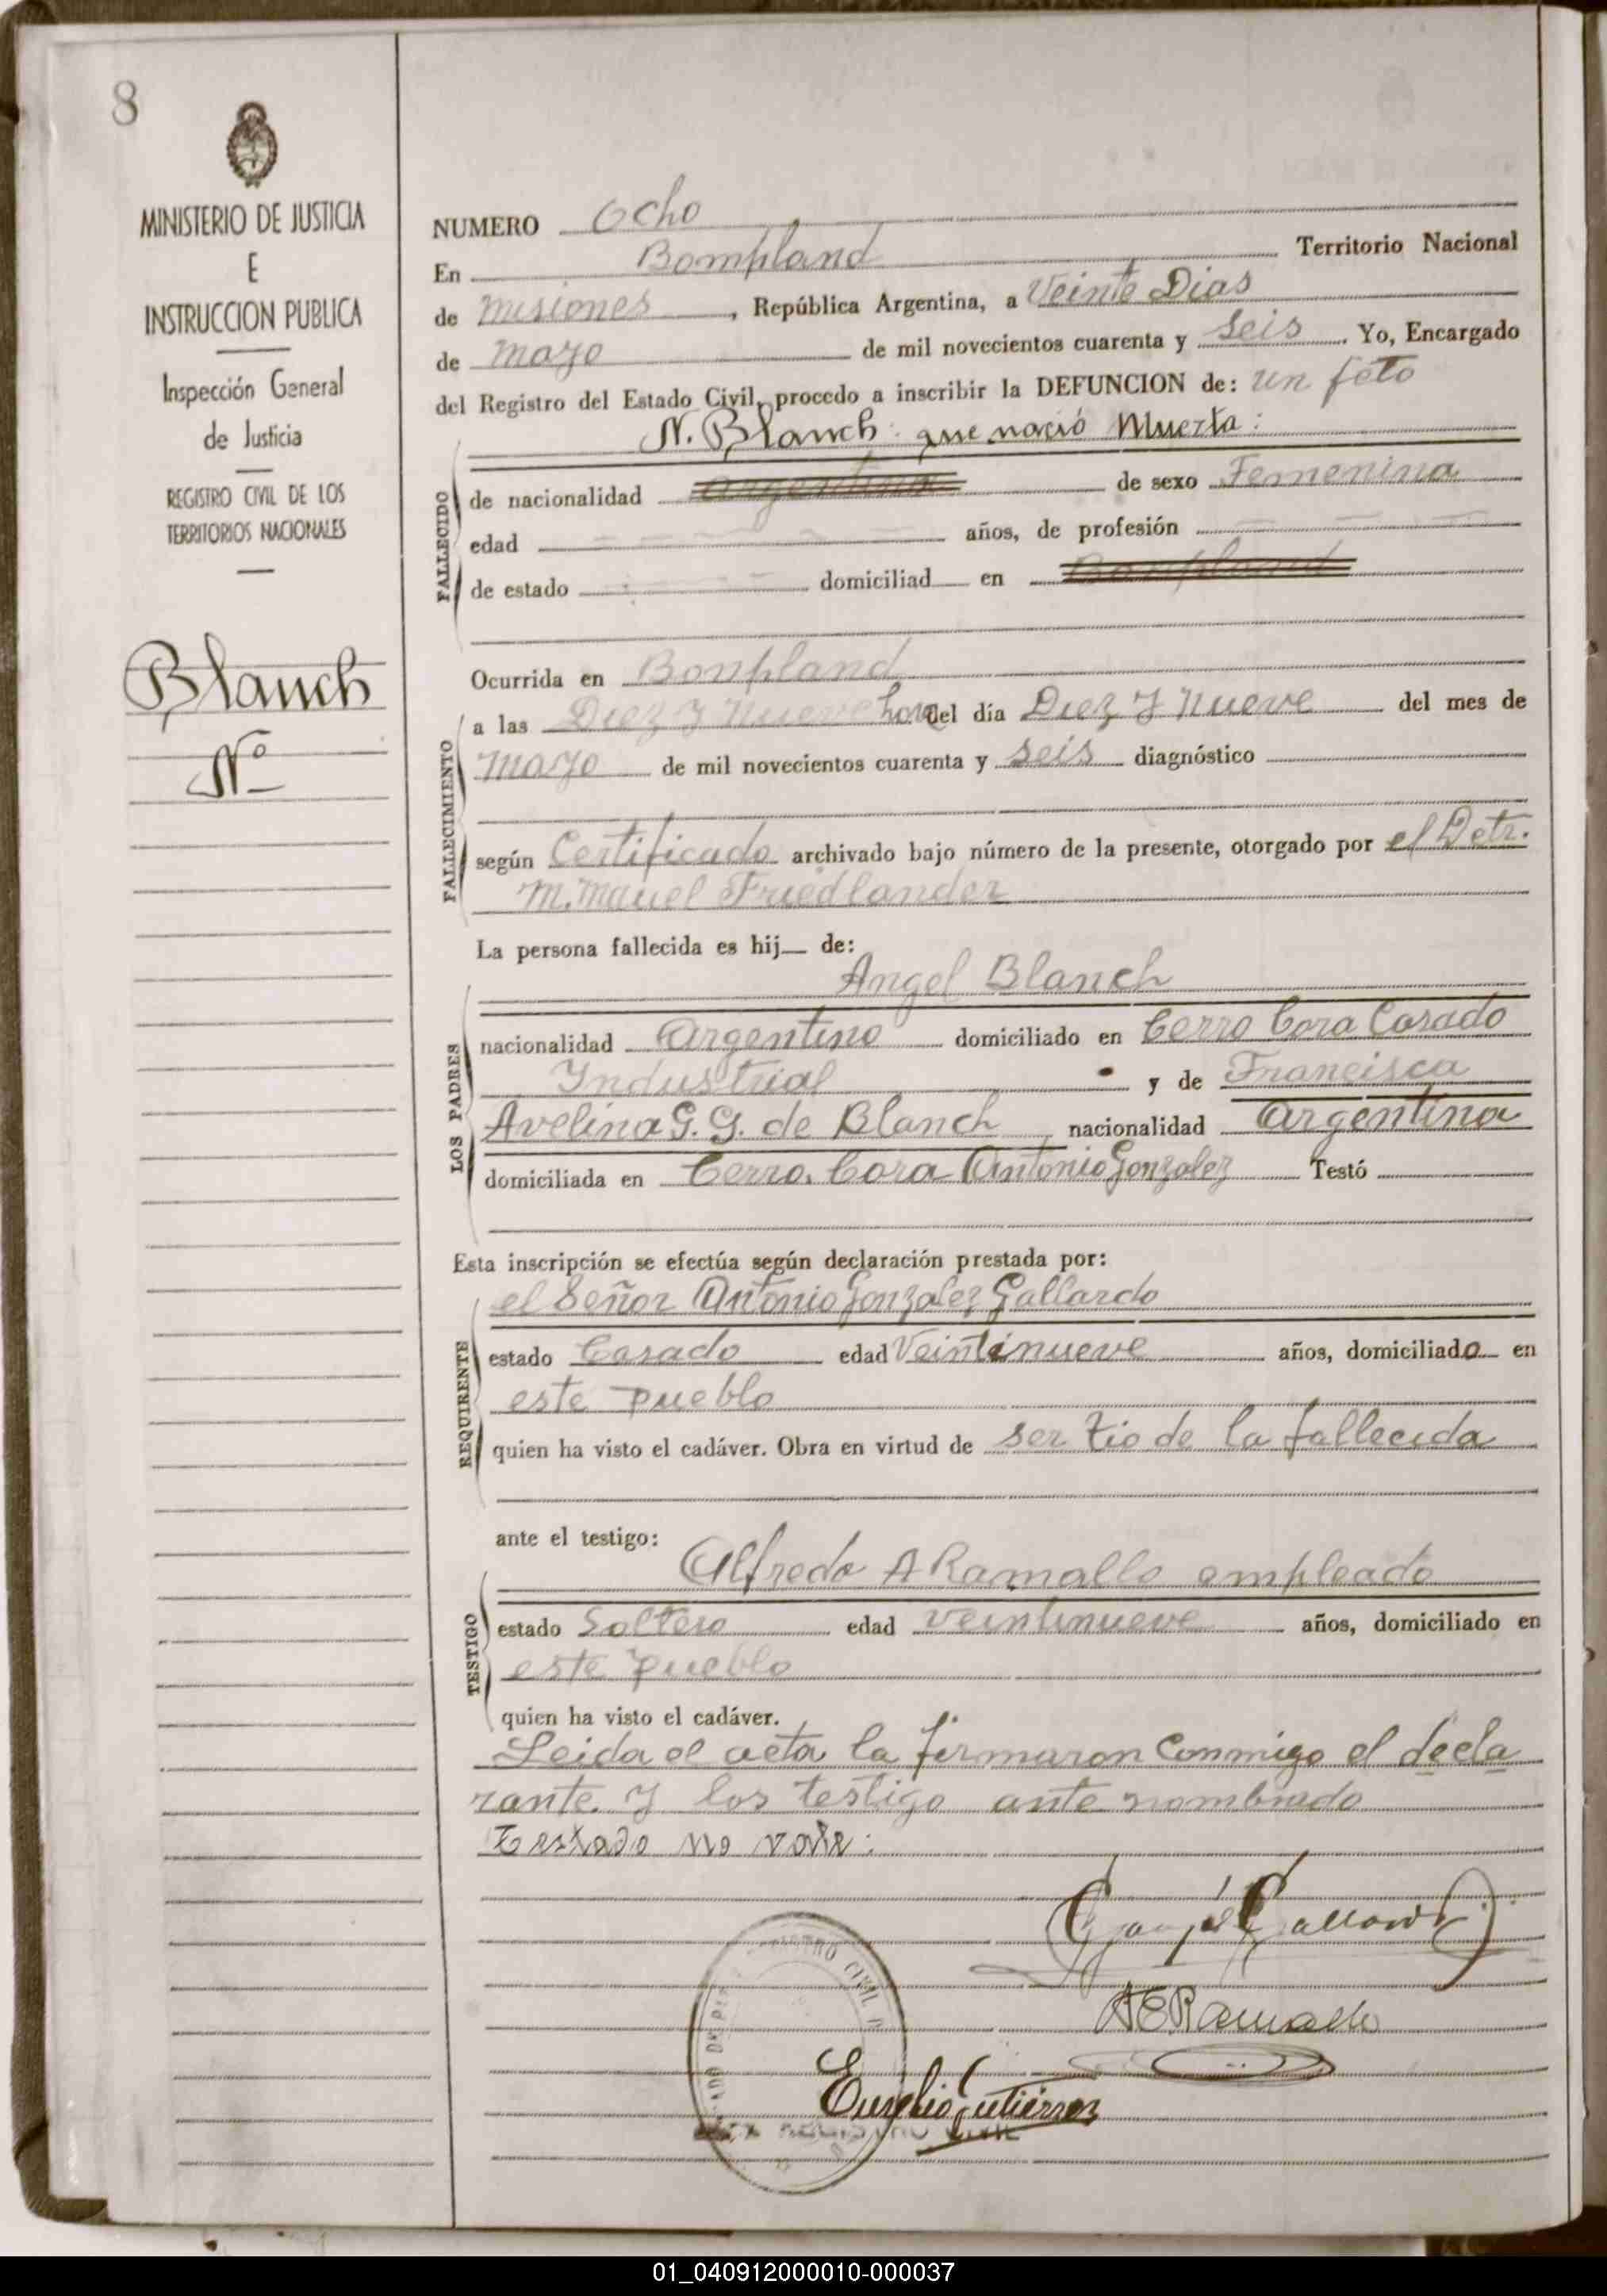 8
MINISTERIO DE JUSTICIA
E
INSTRUCCION PUBLICA
Inspección General
de Justicia
REGISTRO CIVIL DE LOS
TERRITORIOS NACIONALES
Blanch
Nº
NUMERO Ocho
En Bompland Territorio Nacional
de misiones, República Argentina, a Veinte Dias
de mayo de mil novecientos cuarenta y Seis. Yo, Encargado
del Registro del Estado Civil, procedo a inscribir la DEFUNCION de: un feto
N. Blanch: que nació Muerta:
FALLECIDO
de nacionalidad argentina de sexo Femenina
edad años, de profesión
de estado domiciliad en Bonpland
Ocurrida en Bonpland
FALLECIMIENTO
a las Diez y nueve hora del día Diez y nueve del mes de
mayo de mil novecientos cuarenta y seis diagnóstico
según Certificado archivado bajo número de la presente, otorgado por el Dctr.
M. Mauel Friedlander
La persona fallecida es hij de:
Angel Blanch
LOS PADRES
nacionalidad Argentino domiciliado en Cerro Cora Casado
Industrial y de Francisca
Avelina G. G. de Blanch nacionalidad Argentina
domiciliada en Cerro. Cora Antonio Gonzalez Testó
Esta inscripción se efectúa según declaración prestada por:
el Señor Antonio Gonzalez Gallardo
REQUIRENTE
estado Casado edad Veintinueve años, domiciliado en
este pueblo
quien ha visto el cadáver. Obra en virtud de ser tio de la fallecida
ante el testigo:
Alfredo A Ramallo empleado
TESTIGO
estado Soltero edad veintinueve años, domiciliado en
este pueblo
quien ha visto el cadáver.
Leida el acta la firmaron Conmigo el decla
rante. y los testigo ante nombrado
Testado no vale:
AERamallo
Eusebio Gutiérrez
REGISTRO CIVIL
01_040912000010-000037